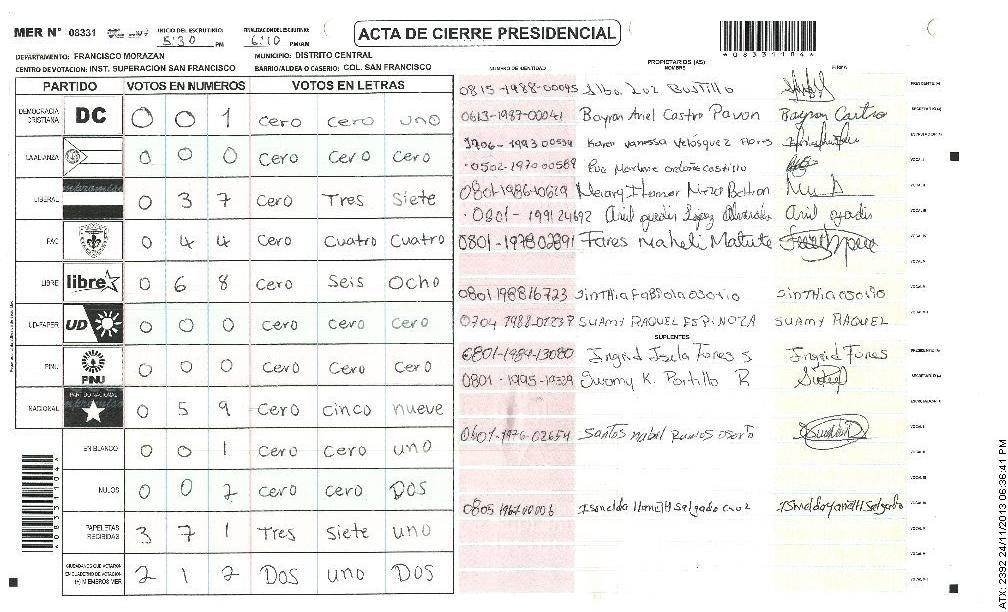 MER N° 08331 INICIO DEL ESCRUTINIO: 5:30 PM FINALIZACION DEL ESCRUTINIO: 6:10 PM/AM
ACTA DE CIERRE PRESIDENCIAL
*08331104*
DEPARTAMENTO: FRANCISCO MORAZAN MUNICIPIO: DISTRITO CENTRAL
CENTRO DE VOTACION: INST. SUPERACION SAN FRANCISCO BARRIO/ALDEA O CASERIO: COL. SAN FRANCISCO
PARTIDO VOTOS EN NUMEROS VOTOS EN LETRAS
DEMOCRACIA CRISTIANA DC 0 0 1 cero cero uno
LA ALIANZA 0 0 0 Cero Cero Cero
LIBERAL 0 3 7 Cero Tres Siete
PAC 0 4 4 Cero Cuatro Cuatro
LIBRE libre 0 6 8 Cero Seis Ocho
UD-FAPER UD 0 0 0 Cero Cero Cero
PINU PINU 0 0 0 Cero Cero Cero
NACIONAL PARTIDO NACIONAL 0 5 9 Cero cinco nueve
EN BLANCO 0 0 1 cero cero uno
NULOS 0 0 2 cero cero DOS
PAPELETAS RECIBIDAS 3 7 1 Tres Siete uno
CIUDADANOS QUE VOTARON EN CUADERNO DE VOTACION (+) MIEMBROS MER 2 1 2 DOS uno DOS
PROPIETARIOS (AS)
NUMERO DE IDENTIDAD NOMBRE FIRMA
0815-1988-00095 Alba Luz Bustillo PRESIDENTE (A)
0613-1987-00041 Bayron Ariel Castro Pavon Bayron Castro SECRETARIO (A)
1706-1993 00554 Karen Vanessa Velásquez Flores
0502-1970-00589 Eva Marlene ordoñez castillo
0801-1986-10629
0801-1991 24692 Lopez
0801-1978 02891 Fares Maheli Matute
0801 1988 16723 Sinthia Fabiola osorio Sinthia osorio
0704 1988-01237 SUAMY RAQUEL ESPINOZA SUAMY RAQUEL
SUPLENTES
0801-1989-13080 Ingrid Isela Fones S Ingrid Fones PRESIDENTE (A)
0801-1995-19339 Swamy K. Portillo R SECRETARIO (A)
0601-1976-02654 Santos nabil Ramos
0805 1967 00006 Salgado cruz
*08331104*
ATX: 2392 24/11/2013 06:36:41 PM